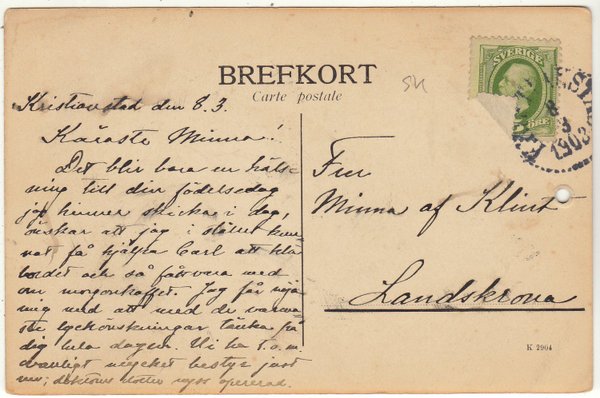 BREFKORT
Carte postale
SVERIGE
ÖRE
8
3
1903
Kristianstad den 8.3.
Käraste Minna!
Det blir bara en häls-
ning till din födelsedag
jag hinner skicka i dag,
önskar att jag i stället kun-
nat få hjälpa Carl att kla
bordet och så få vara med
om morgonkaffet. Jag får nöja
mig med att med de varma-
ste lyckönskningar tänka på
dig hela dagen. Vi ha t.o.m.
ovanligt mycket bestyr just
nu; doktorns dotter opererad.
Fru
Minna af Klint
Landskrona
K 2904